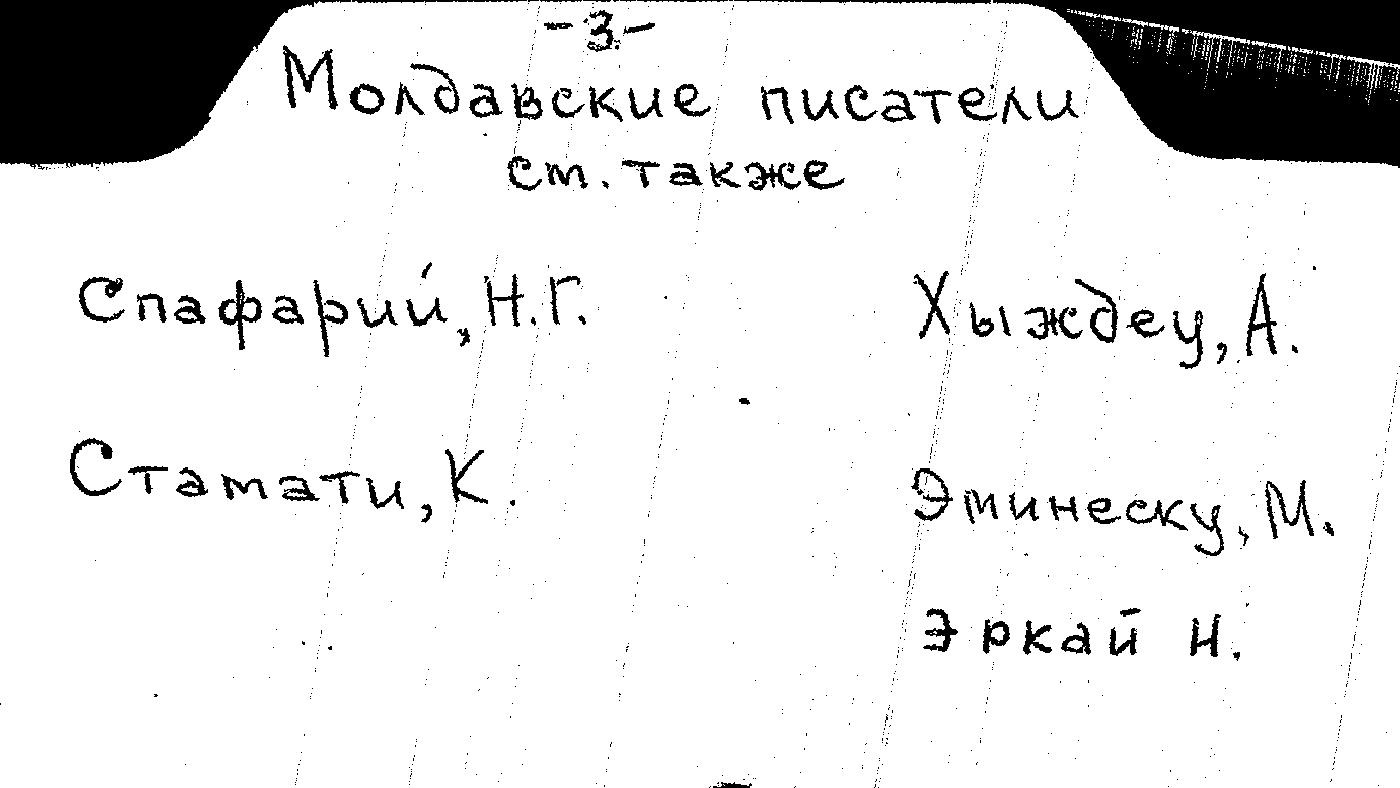 -3-
Молдавские писатели
ст. также
Спафарий, Н.Г.
Стамати, К.
Хыждеу, А.
Эминеску, М.
Эркай Н.